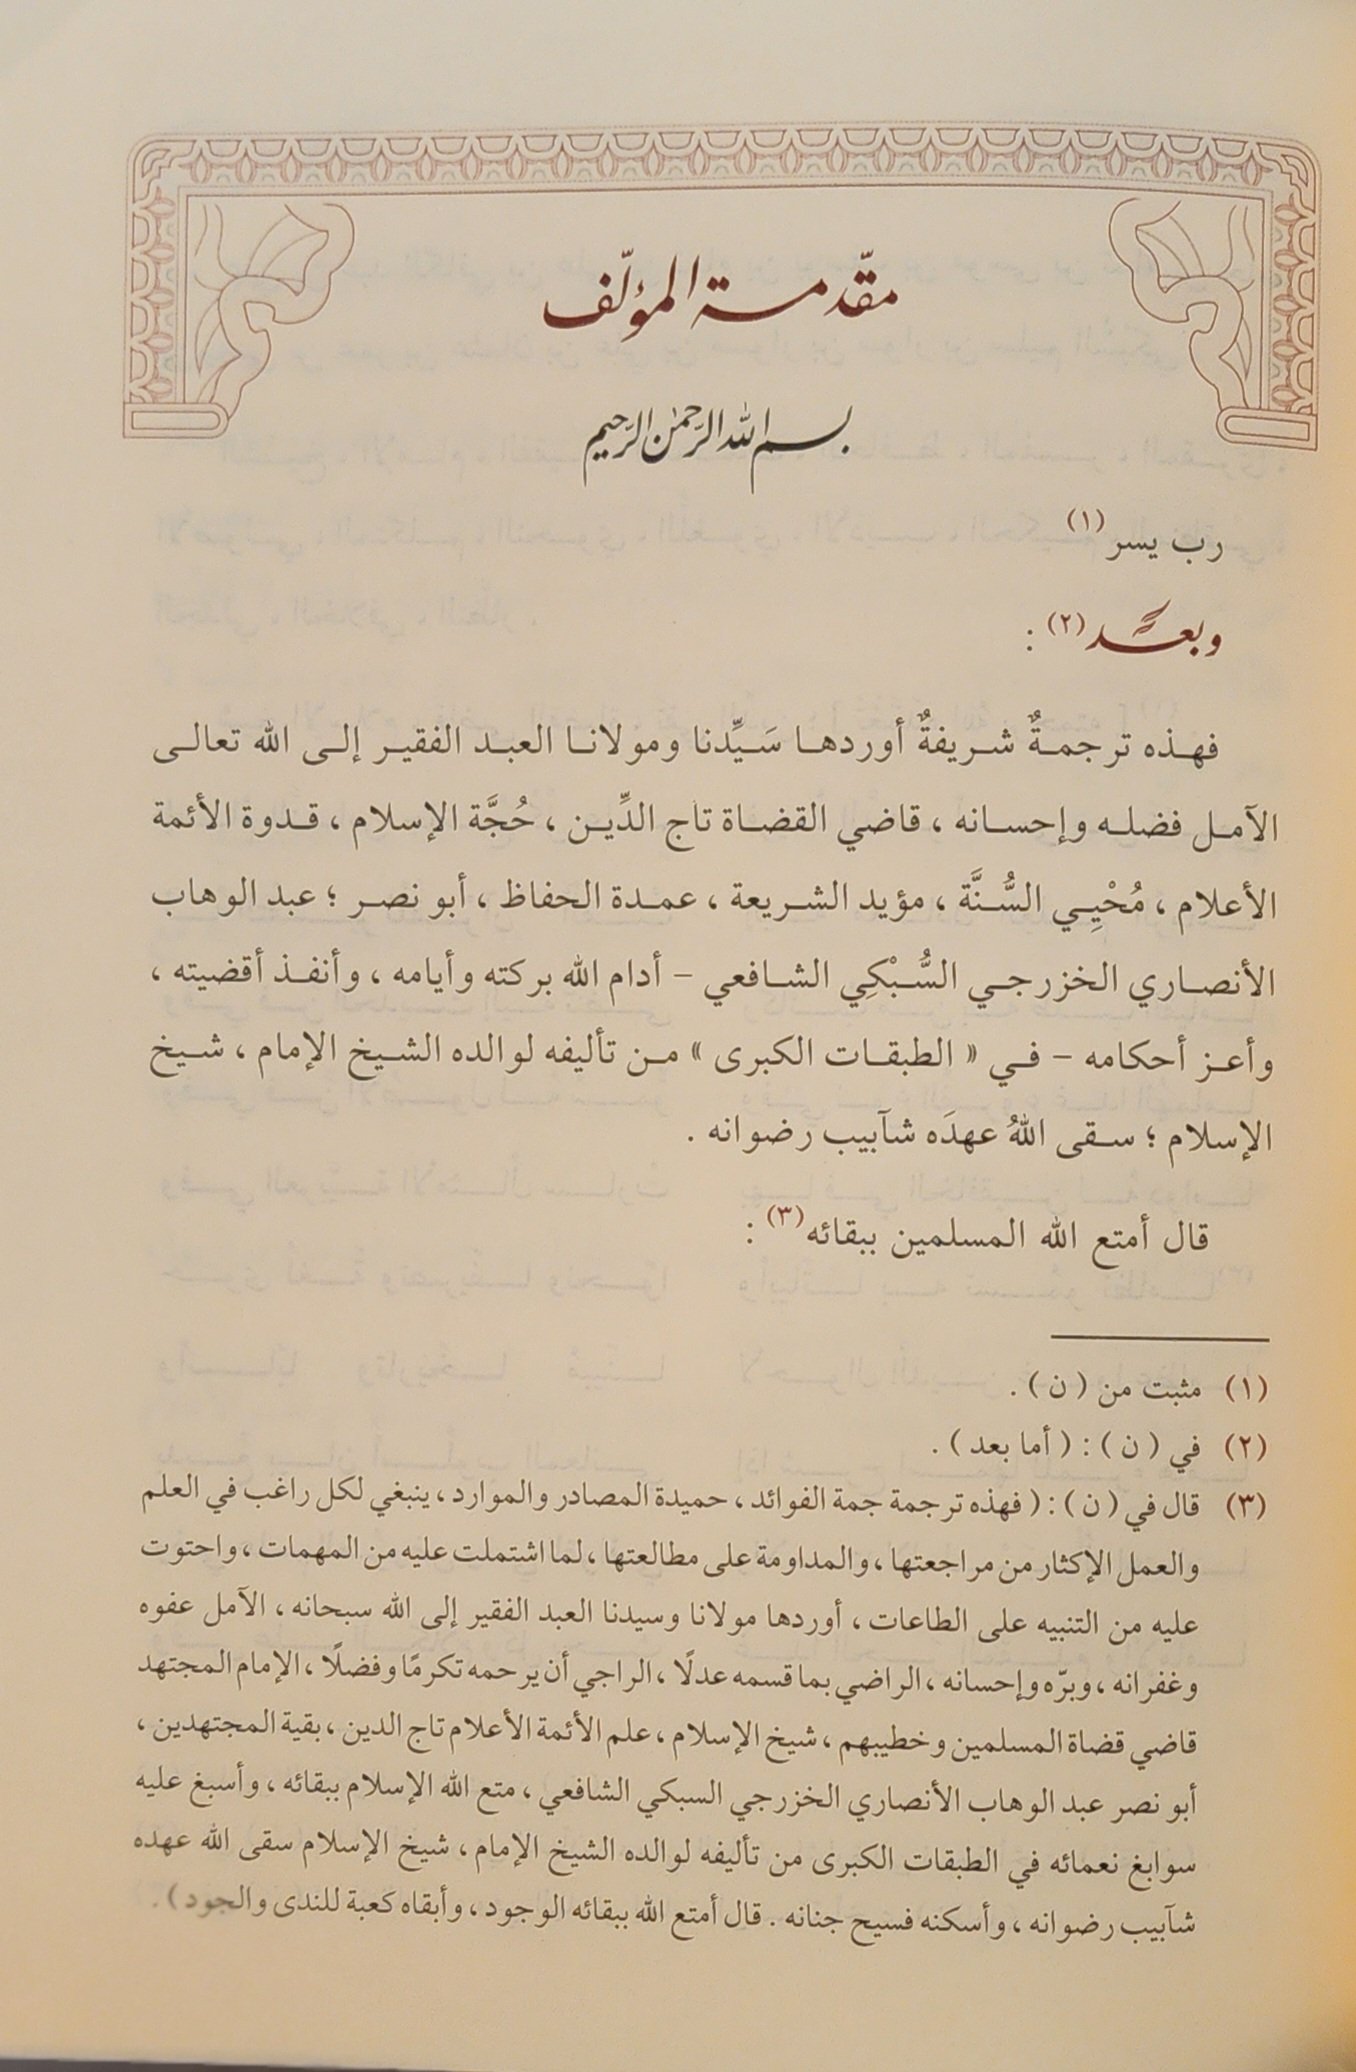 مقدّمة المؤلّف
بسم الله الرّحمٰن الرّحيم
رب يسر(١)
وبعد(٢) :
فهذه ترجمةٌ شريفةٌ أوردها سَيِّدنا ومولانا العبد الفقير إلى الله تعالى
الآمل فضله وإحسانه ، قاضي القضاة تاج الدِّين ، حُجَّة الإسلام ، قدوة الأئمة
الأعلام ، مُحْيِي السُّنَّة ، مؤيد الشريعة ، عمدة الحفاظ ، أبو نصر ؛ عبد الوهاب
الأنصاري الخزرجي السُّبْكِي الشافعي – أدام الله بركته وأيامه ، وأنفذ أقضيته ،
وأعز أحكامه – في « الطبقات الكبرى » من تأليفه لوالده الشيخ الإمام ، شيخ
الإسلام ؛ سقى اللهُ عهدَه شآبيب رضوانه .
قال أمتع الله المسلمين ببقائه(٣) :
(١) مثبت من ( ن ) .
(٢) في ( ن ) : ( أما بعد ) .
(٣) قال في ( ن ) : ( فهذه ترجمة جمة الفوائد ، حميدة المصادر والموارد ، ينبغي لكل راغب في العلم
والعمل الإكثار من مراجعتها ، والمداومة على مطالعتها ، لما اشتملت عليه من المهمات ، واحتوت
عليه من التنبيه على الطاعات ، أوردها مولانا وسيدنا العبد الفقير إلى الله سبحانه ، الآمل عفوه
وغفرانه ، وبرّه وإحسانه ، الراضي بما قسمه عدلًا ، الراجي أن يرحمه تكرمًا وفضلًا ، الإمام المجتهد
قاضي قضاة المسلمين وخطيبهم ، شيخ الإسلام ، علم الأئمة الأعلام تاج الدين ، بقية المجتهدين ،
أبو نصر عبد الوهاب الأنصاري الخزرجي السبكي الشافعي ، متع الله الإسلام ببقائه ، وأسبغ عليه
سوابغ نعمائه في الطبقات الكبرى من تأليفه لوالده الشيخ الإمام ، شيخ الإسلام سقى الله عهده
شآبيب رضوانه ، وأسكنه فسيح جنانه . قال أمتع الله ببقائه الوجود ، وأبقاه كعبة للندى والجود ) .